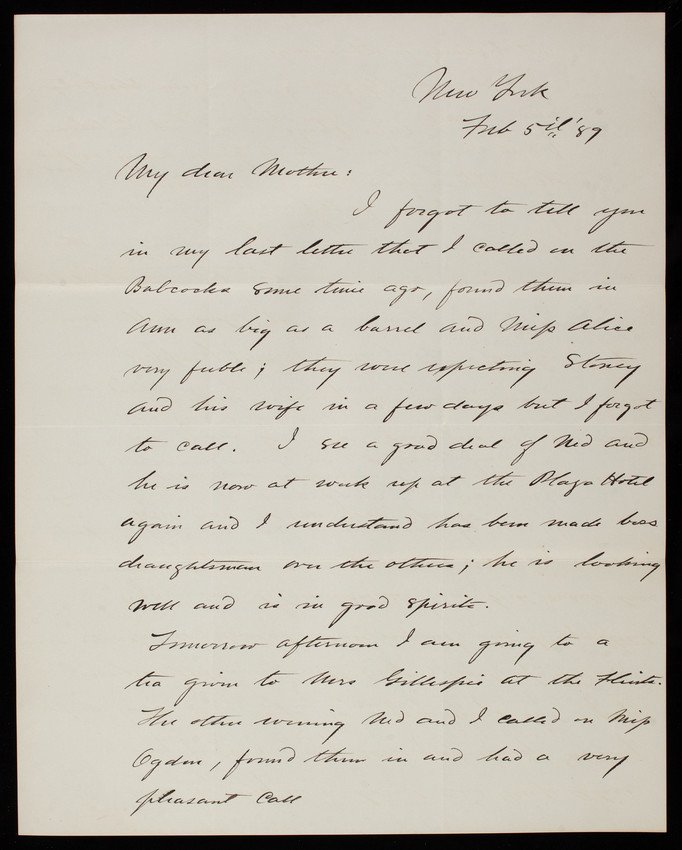 New York
Feb 5th '89
My dear Mother:
I forgot to tell you
in my last letter that I called on the
Babcocks some time ago, found them in
Ann as big as a barrel and Miss Alice
very feeble; they were expecting Stoney
and his wife in a few days but I forgot
to call. I see a good deal of Ned and
he is now at work up at the Plaza Hotel
again and I understand has been made boss
draughtsman over the others; he is looking
well and is in good spirits.
Tomorrow afternoon I am going to a
tea given to Mrs Gillespie at the Flints.
The other evening Ned and I called on Miss
Ogden, found them in and had a very
pleasant call